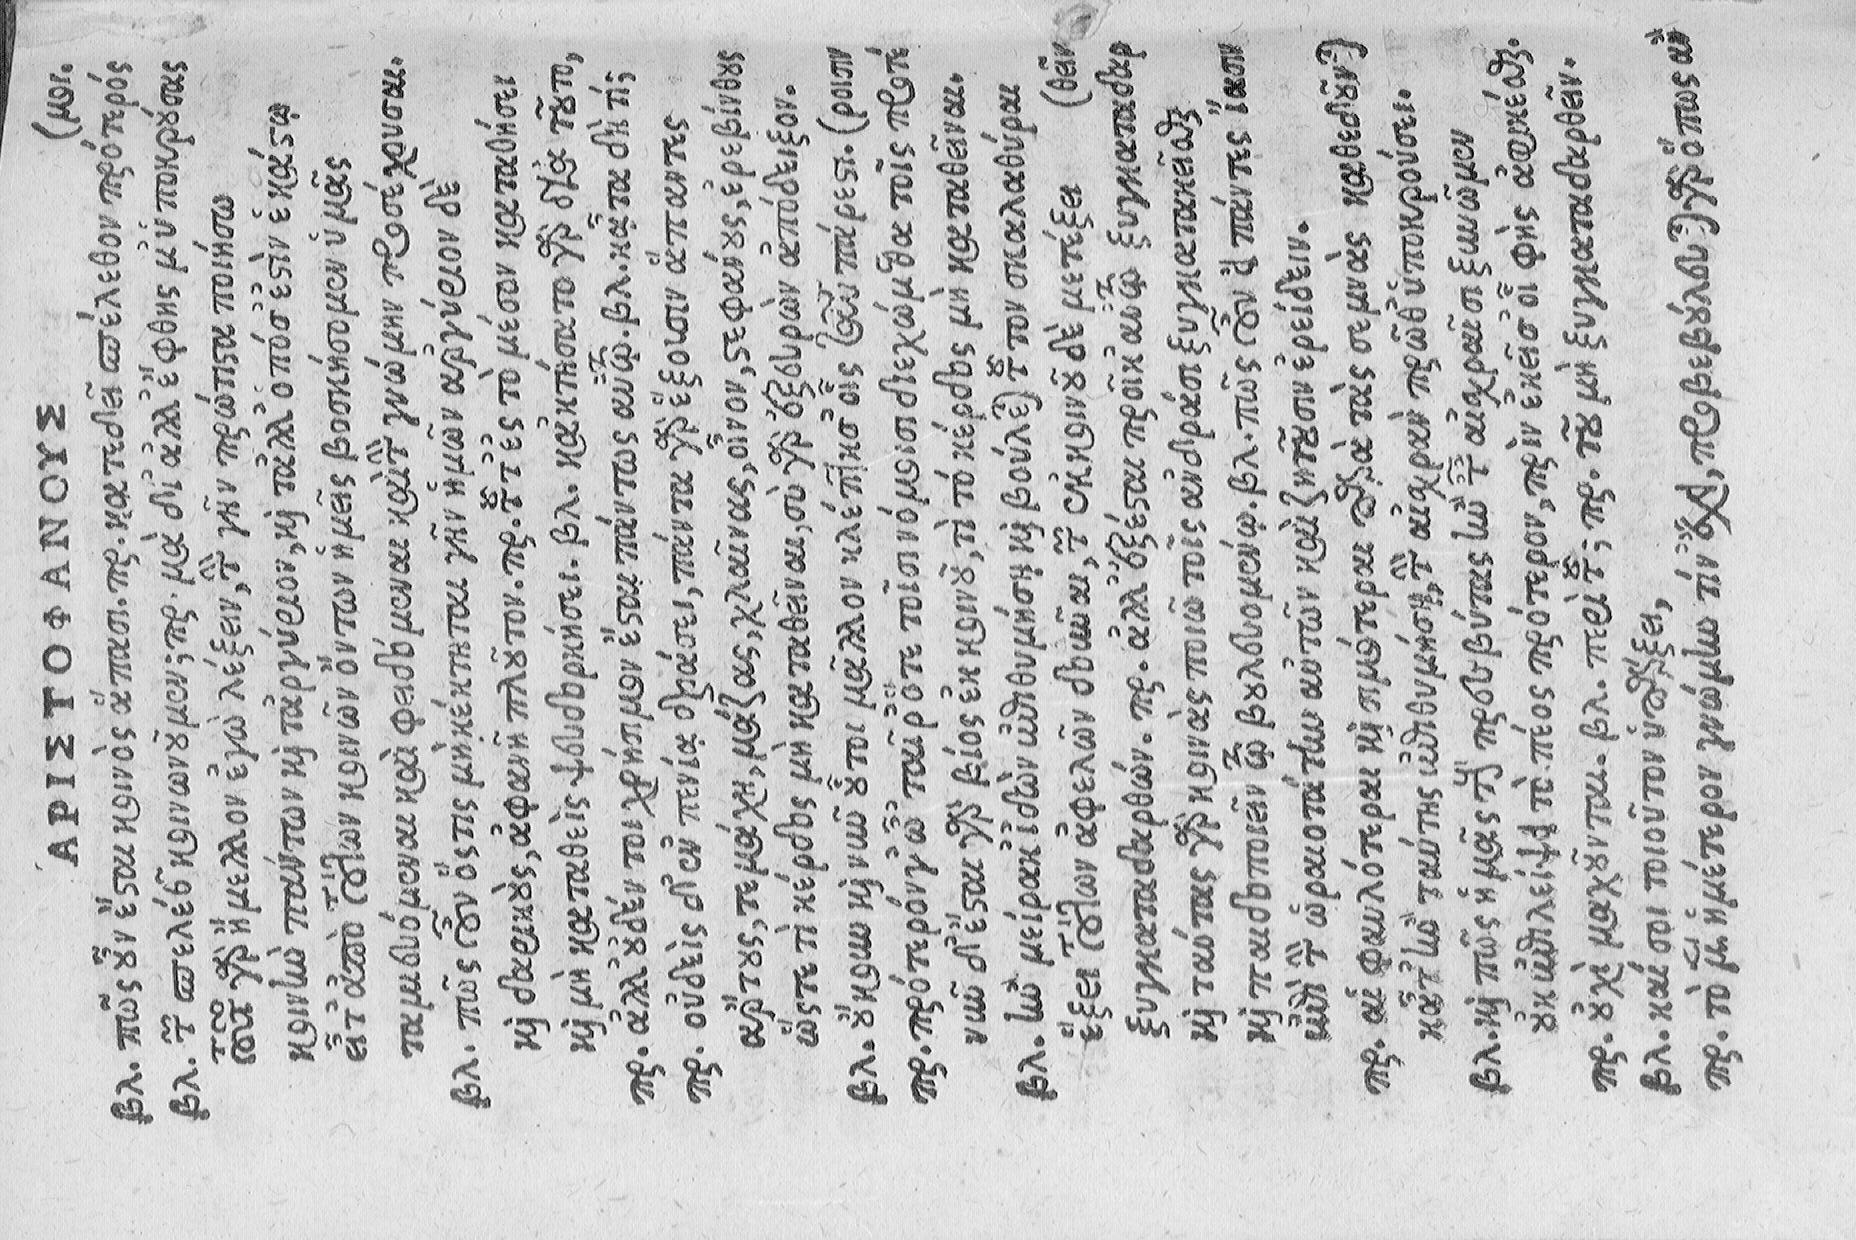 ἈΡΙΣΤΟΦΑΝΟΥΣ
(μοι.
βλ. πῶς οὖν ἔσται κοινὸς ἅπασι. πρ. κατεδεῖ πέλεθον πρότερός
βλ. τῶν πελέθων κοινωνοῦμεν; πρ. μὰ δί' ἀλλ' ἔφθης μ' ὑποκρούσας
τοῦτο γὰρ ἤμελλον ἐγὼ λέξειν, τὴν γῆν πρώτιστα ποιήσω
κοινὴν πάντων καὶ τἀργύριον, καὶ τἆλλ' ὁπόσ' ἐστὶν ἑκάστῳ
εἶτ' ἀπὸ τούτων κοινῶν ὄντων ἡμεῖς βοσκήσομεν ὑμᾶς
ταμιευόμεναι καὶ φειδόμεναι καὶ τὴν γνώμην προσέχουσαι.
βλ. πῶς οὖν ὅστις μὴ κέκτηται γῆν ἡμῶν ἀργύριον δὲ
καὶ δαρεικοὺς, ἀφανῆ πλοῦτον. πρ. τοῦτ' ἐς τὸ μέσον καταθήσει
καὶ μὴ καταθεὶς ψευδορκήσει. βλ. κἀκτήσατο γὰρ διὰ τοῦτο,
πρ. ἀλλ' οὐδέν τοι χρήσιμον ἔσται πάντως αὐτῷ. βλ. κᾆτα δὴ τίς
πρ. οὐδεὶς οὐδὲν πενίᾳ δράσει, πάντα γὰρ ἕξουσιν ἅπαντες
ἄρτους, τεμάχη, μάζας, χλαίνας, οἶνον, στεφάνους, ἐρεβίνθους
ὥστε τί κέρδος μὴ καταθεῖναι, σὺ γὰρ ἐξευρὼν ἀπόδειξον.
βλ. οὔκουν καὶ νῦν οὗτοι μᾶλλον κλέπτουσ' οἷς ταῦτα πάρεστι. (ροισιν
πρ. πρότερόν γ' ὦ ταῖρ' ὅτε τοῖσι νόμοισι διεχρώμεθα τοῖς προτέ
νῦν δ' ἔσται γὰρ βίος ἐκ κοινοῦ, τί τὸ κέρδος μὴ καταθεῖναι.
βλ. ἢν μείρακ' ἰδὼν ἐπιθυμήσῃ καὶ βούλεται τοῦτον σκαλαθύραι
ἕξει τούτων ἀφελὼν δοῦναι, τῶν ἐκ κοινοῦ δὲ μετέξει (θεῖν
ξυγκαταδαρθών. πρ. ἀλλ' ἐξέσται προῖκ' αὐτῷ ξυγκαταδαρ
καὶ ταύτας γὰρ κοινὰς ποιῶ τοῖς ἀνδράσι ξυγκατακεῖσθαι
καὶ παιδοποιεῖν τῷ βουλομένῳ. βλ. πῶς οὖν εἰ πάντες ἴασιν
ἐπὶ τὴν ὡραιοτάτην αὐτῶν καὶ ζητοῦσιν ἐρείδειν.
πρ. αἱ φαυλότεραι καὶ σιμότεραι παρὰ τὰς σεμνὰς καθεδοῦνται)
κᾆτ' ἢν ταύτης ἐπιθυμήσῃ, τὴν αἰσχρὰν πρῶθ' ὑποκρούσει.
βλ. καὶ πῶς ἡμᾶς τοὺς πρεσβύτας ἢν ταῖς αἰσχραῖσι ξυνῶμεν
οὐκ ἐπιλείψει τὸ πέος πρότερον, πρὶν ἐκεῖσ' οἷ φῂς ἀφικέσθαι.
πρ. οὐχὶ μαχοῦνται. βλ. περὶ τοῦ; πρ. τοῦ μὴ ξυγκαταδαρθεῖν.
βλ. καί σοι τοιοῦτον ὑπάρξει,
πρ. τὸ μὲν ἡμέτερον γνώμην τίν' ἔχει, προβεβούλευται γὰρ ὅπως ἂν